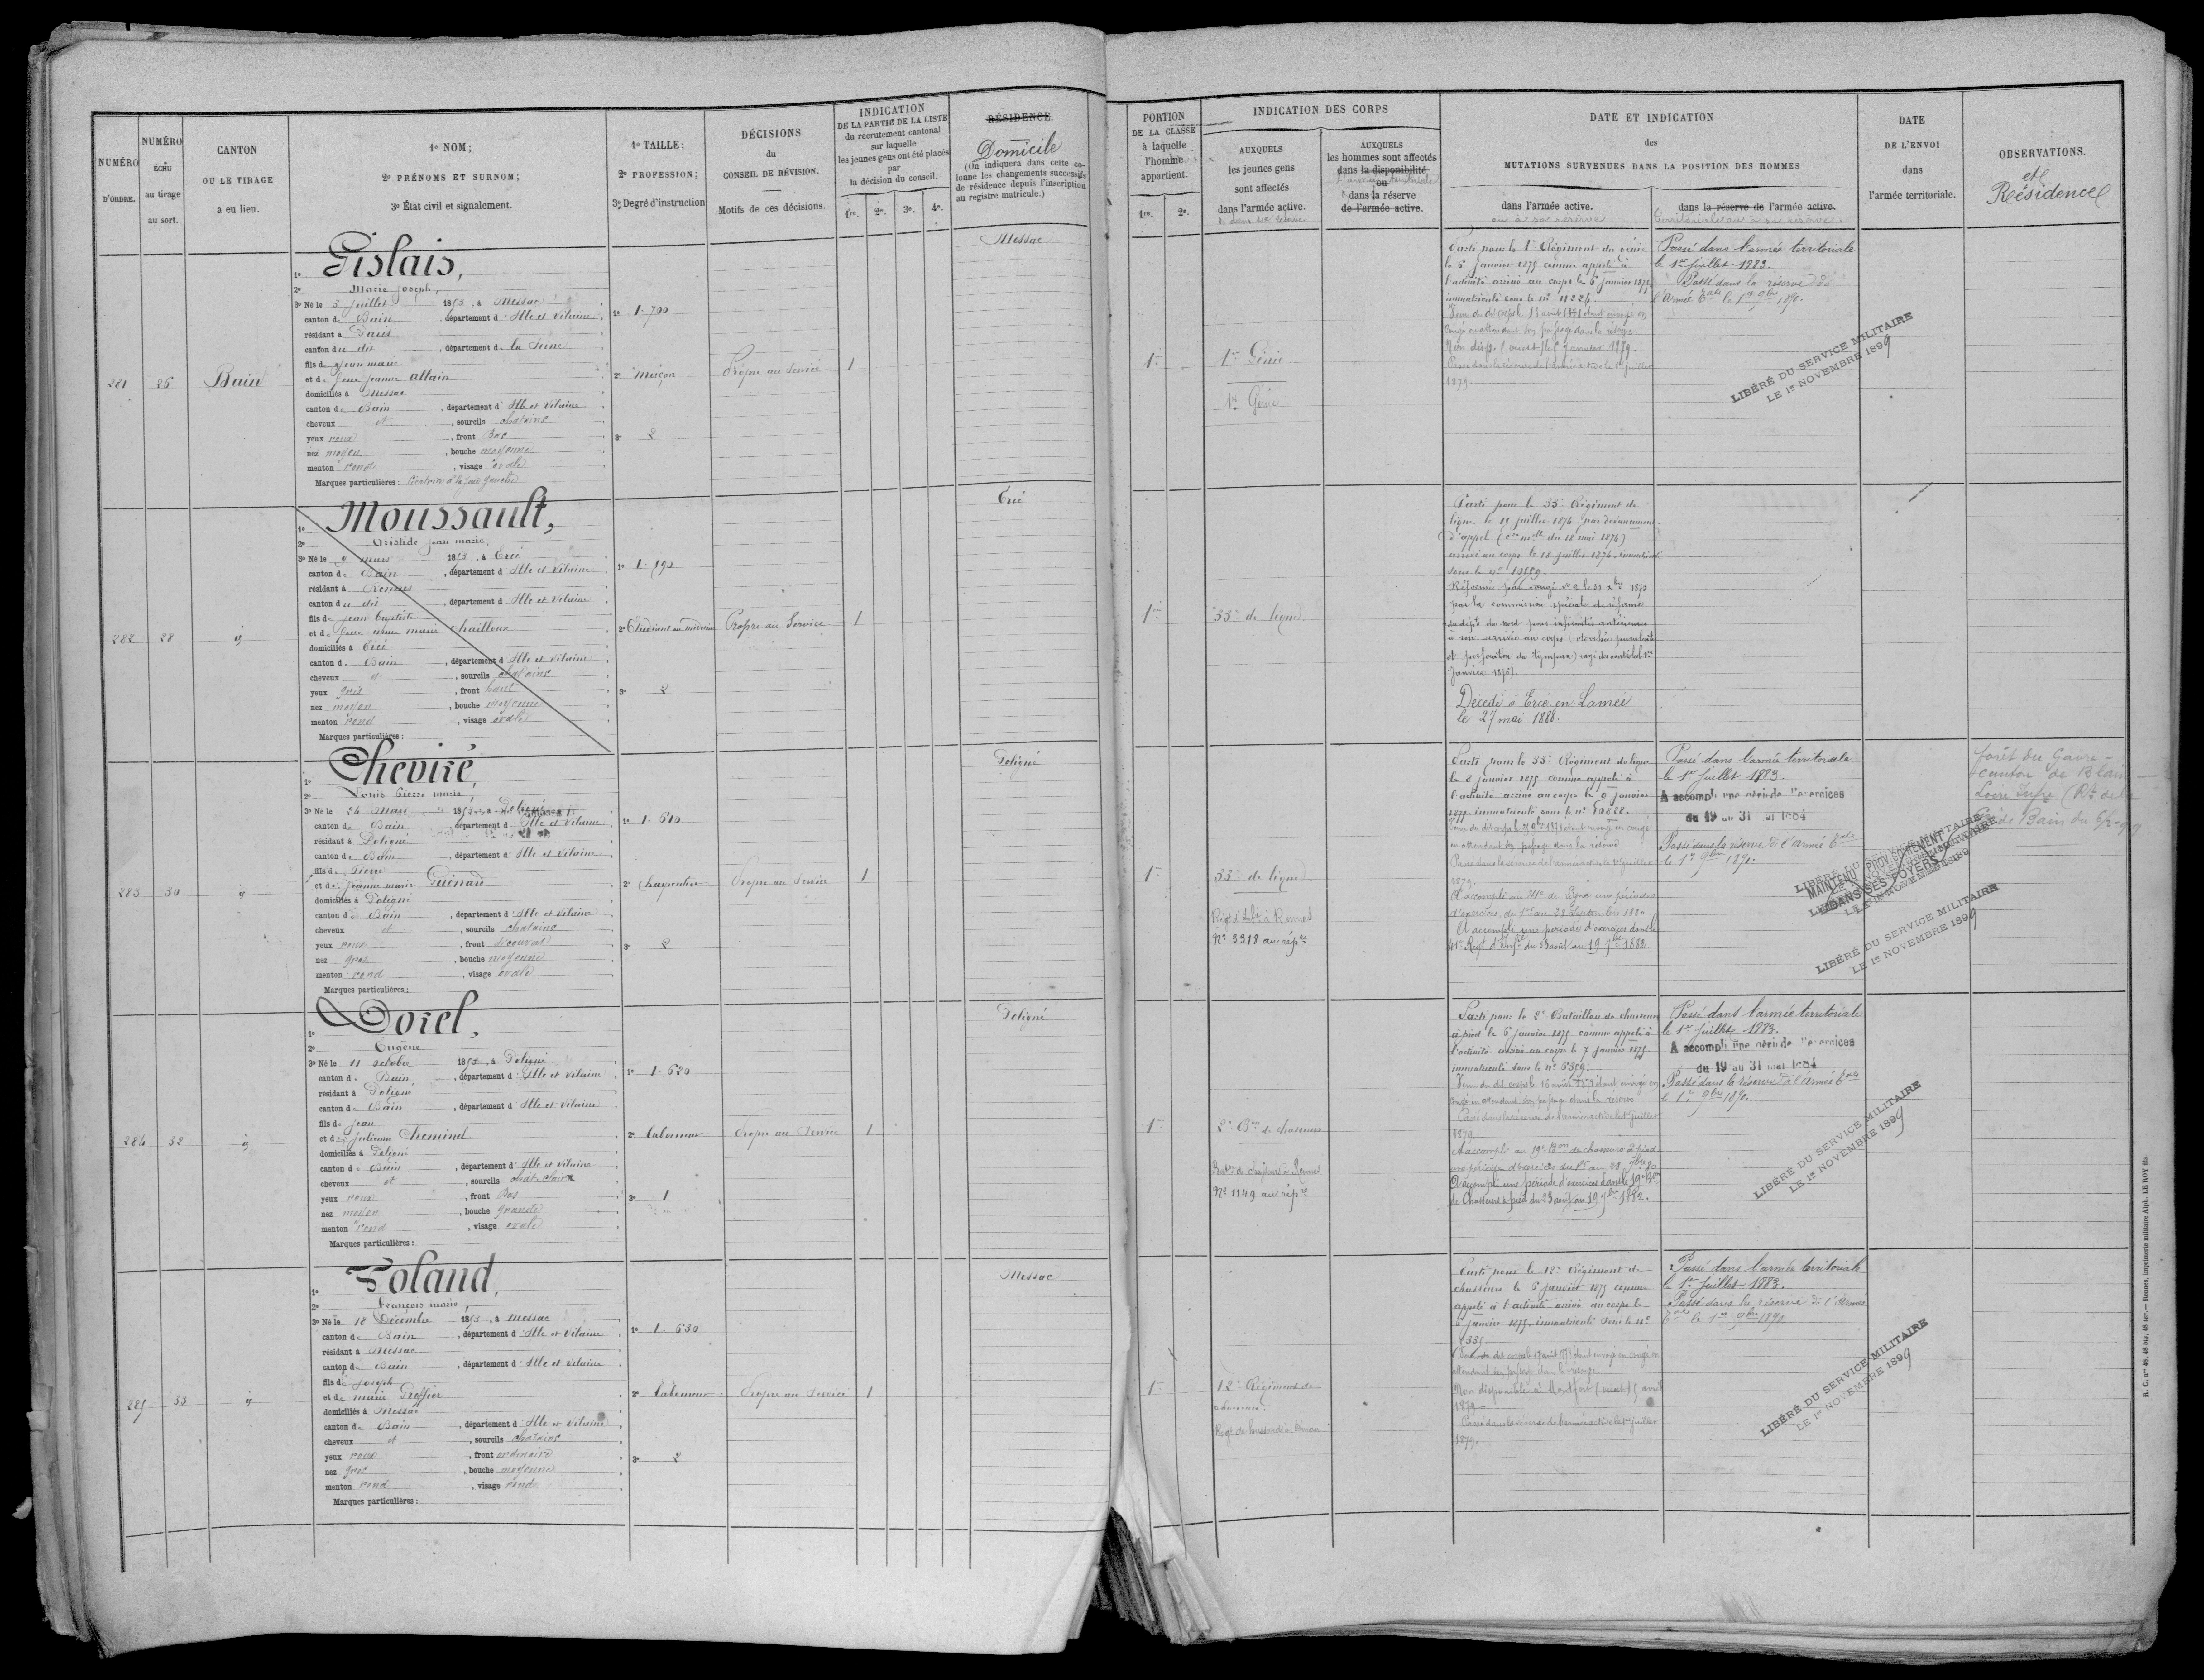 NUMÉRO
D'ORDRE.
NUMÉRO
ÉCHU
au tirage
au sort.
CANTON
OU LE TIRAGE
a eu lieu.
1º NOM;
2º PRÉNOMS ET SURNOM;
3º État civil et signalement.
1º TAILLE;
2º PROFESSION;
3º Degré d'instruction
DÉCISIONS
du
CONSEIL DE RÉVISION.
Motifs de ces décisions.
INDICATION
DE LA PARTIE DE LA LISTE
du recrutement cantonal
sur laquelle
les jeunes gens ont été placés
par
la décision du conseil.
1re. 2e. 3e. 4e.
RÉSIDENCE.
Domicile
(On indiquera dans cette co-
lonne les changements successifs
de résidence depuis l'inscription
au registre matricule.)
281
26
Bain
1º Gislais,
2º Marie Joseph,
3º Né le 5 Juillet 1853, à Messac
canton de Bain, département d'Ille et Vilaine
résidant à Paris
canton du dit, département de la Seine
fils de Jean marie
et de feue Jeanne Allain
domiciliés à Messac
canton de Bain, département d'Ille et Vilaine
cheveux et, sourcils chatains
yeux roux, front Bas
nez moyen, bouche moyenne
menton rond, visage ovale
Marques particulières: Cicatrice à la joue gauche
1º 1.700
2º Maçon
3º 2
Propre au Service
1
Messac
282
28
id
1º Moussault,
2º Aristide Jean marie,
3º Né le 9 mars 1853, à Ercé
canton de Bain, département d'Ille et Vilaine
résidant à Rennes
canton du dit, département d'Ille et Vilaine
fils de Jean Baptiste
et de feue anne marie Chailleux
domiciliés à Ercé
canton de Bain, département d'Ille et Vilaine
cheveux et, sourcils chatains
yeux gris, front haut
nez moyen, bouche moyenne
menton rond, visage ovale
Marques particulières:
1º 1.590
2º Etudiant en médecine
3º 2
Propre au Service
1
Ercé
283
30
id
1º Cheviré,
2º Louis Pierre marie,
3º Né le 24 Mars 1853, à Poligné
canton de Bain, département d'Ille et Vilaine
résidant à Poligné
canton de Bain, département d'Ille et Vilaine
fils de Pierre
et de Jeanne marie Guénard
domiciliés à Poligné
canton de Bain, département d'Ille et Vilaine
cheveux et, sourcils chatains
yeux roux, front découvert
nez gros, bouche moyenne
menton rond, visage ovale
Marques particulières:
1º 1.610
2º Charpentier
3º 2
Propre au Service
1
Poligné
284
32
id
1º Dorel,
2º Eugène
3º Né le 11 Octobre 1853, à Poligné
canton de Bain, département d'Ille et Vilaine
résidant à Poligné
canton de Bain, département d'Ille et Vilaine
fils de Jean
et de Julienne Cheminel
domiciliés à Poligné
canton de Bain, département d'Ille et Vilaine
cheveux et, sourcils chat. clairs
yeux roux, front Bas
nez moyen, bouche grande
menton rond, visage ovale
Marques particulières:
1º 1.620
2º Laboureur
3º 1
Propre au Service
1
Poligné
285
33
id
1º Poland,
2º François marie,
3º Né le 18 Décembre 1853, à Messac
canton de Bain, département d'Ille et Vilaine
résidant à Messac
canton de Bain, département d'Ille et Vilaine
fils de Joseph
et de marie Grossier
domiciliés à Messac
canton de Bain, département d'Ille et Vilaine
cheveux et, sourcils chatains
yeux roux, front ordinaire
nez gros, bouche moyenne
menton rond, visage rond
Marques particulières:
1º 1.630
2º Laboureur
3º 2
Propre au Service
1
Messac
PORTION
DE LA CLASSE
à laquelle
l'homme
appartient.
1re. 2e.
INDICATION DES CORPS
AUXQUELS
les jeunes gens
sont affectés
dans l'armée active.
AUXQUELS
les hommes sont affectés
dans la disponibilité
ou
dans la réserve
de l'armée active.
DATE ET INDICATION
des
MUTATIONS SURVENUES DANS LA POSITION DES HOMMES
dans l'armée active.
ou à sa réserve
dans la réserve de l'armée active.
territoriale ou à sa réserve.
DATE
DE L'ENVOI
dans
l'armée territoriale.
OBSERVATIONS.
et
Résidence
1re
1er Génie
1er Génie
Parti pour le 1er Régiment du génie
le 5 janvier 1875 comme appelé à
l'activité arrivé au corps le 6 janvier 1875
immatriculé sous le nº 11226.
Venu du dit corps le 18 août 1878 étant envoyé en
congé en attendant son passage dans la réserve
Passé dans la réserve de l'armée active le 1er juillet
1879.
Passé dans l'armée territoriale
le 1er Juillet 1883.
Passé dans la réserve de
l'Armée Tale le 1er 9bre 1890.
LIBÉRÉ DU SERVICE MILITAIRE
LE 1er NOVEMBRE 1899
1re
33e de ligne
Parti pour le 33e Régiment de
ligne le 18 juillet 1874 par devancement
d'appel
arrivé au corps le 18 juillet 1874, immatriculé
sous le nº 10889.
Réformé par congé nº 2 le 31 Xbre 1875
par la commission spéciale de réforme
du dépt du nord pour infirmités antérieures
à son arrivée au corps (otorrhée purulente
et perforation du tympan) rayé des contrôles le 1er
Janvier 1876).
Décédé à Ercé en Lamée
le 27 mai 1888.
1re
33e de ligne
Régt d'Infie à Rennes
Nº 3318 au répre
Parti pour le 33e Régiment de ligne
le 2 janvier 1875 comme appelé à
l'activité arrivé au corps le 9 janvier
1875 immatriculé sous le nº 10828.
en attendant son passage dans la réserve
Passé dans la réserve de l'armée active le 1er juillet
1879.
A accompli au 41e de ligne une période
d'exercices du 1er au 28 Septembre 1880.
A accompli une période d'exercices dans le
41e Regt d'Infie du 23 août au 19 7bre 1882.
Passé dans l'armée territoriale
le 1er Juillet 1883.
A accompli une période d'exercices
du 19 au 31 mai 1884
Passé dans la réserve de l'Armée Tale
le 1er 9bre 1890.
MAINTENU PROVISOIREMENT
DANS SES FOYERS
LIBÉRÉ DU SERVICE MILITAIRE
LE 1er NOVEMBRE 1899
forêt du Gavre -
canton de Blain
Loire Infre
1re
2e Bon de chasseurs
Baton de chasseurs à Rennes
Nº 1149 au répre
Parti pour le 2e Bataillon de chasseurs
à pied le 6 janvier 1875 comme appelé à
l'activité arrivé au corps le 7 janvier 1875
immatriculé sous le nº 6359.
Venu du dit corps le 16 août 1878 étant envoyé en
congé en attendant son passage dans la réserve
Passé dans la réserve de l'armée active le 1er juillet
1879.
A accompli au 19e Bon de chasseurs à pied
une période d'exercices du 1er au 28 7bre 80
A accompli une période d'exercices dans le 19e Bon
de Chasseurs à pied du 23 août au 19 7bre 1882.
Passé dans l'armée territoriale
le 1er Juillet 1883.
A accompli une période d'exercices
du 19 au 31 mai 1884
Passé dans la réserve de l'Armée Tale
le 1er 9bre 1890.
LIBÉRÉ DU SERVICE MILITAIRE
LE 1er NOVEMBRE 1899
1re
12e Régiment de
chasseurs
Régt de hussards à Dinan
Parti pour le 12e Régiment de
chasseurs le 6 janvier 1875 comme
appelé à l'activité arrivé au corps le
janvier 1875, immatriculé sous le nº
attendant son passage dans la réserve
Non disponible à Montfort (ouest) 5 avril
1879
Passé dans la réserve de l'armée active le 1er juillet
1879.
Passé dans l'armée territoriale
le 1er Juillet 1883.
Passé dans la réserve de l'Armée
Tale le 1er 9bre 1890
LIBÉRÉ DU SERVICE MILITAIRE
LE 1er NOVEMBRE 1899
Rennes, imprimerie militaire Alph. LE ROY fils